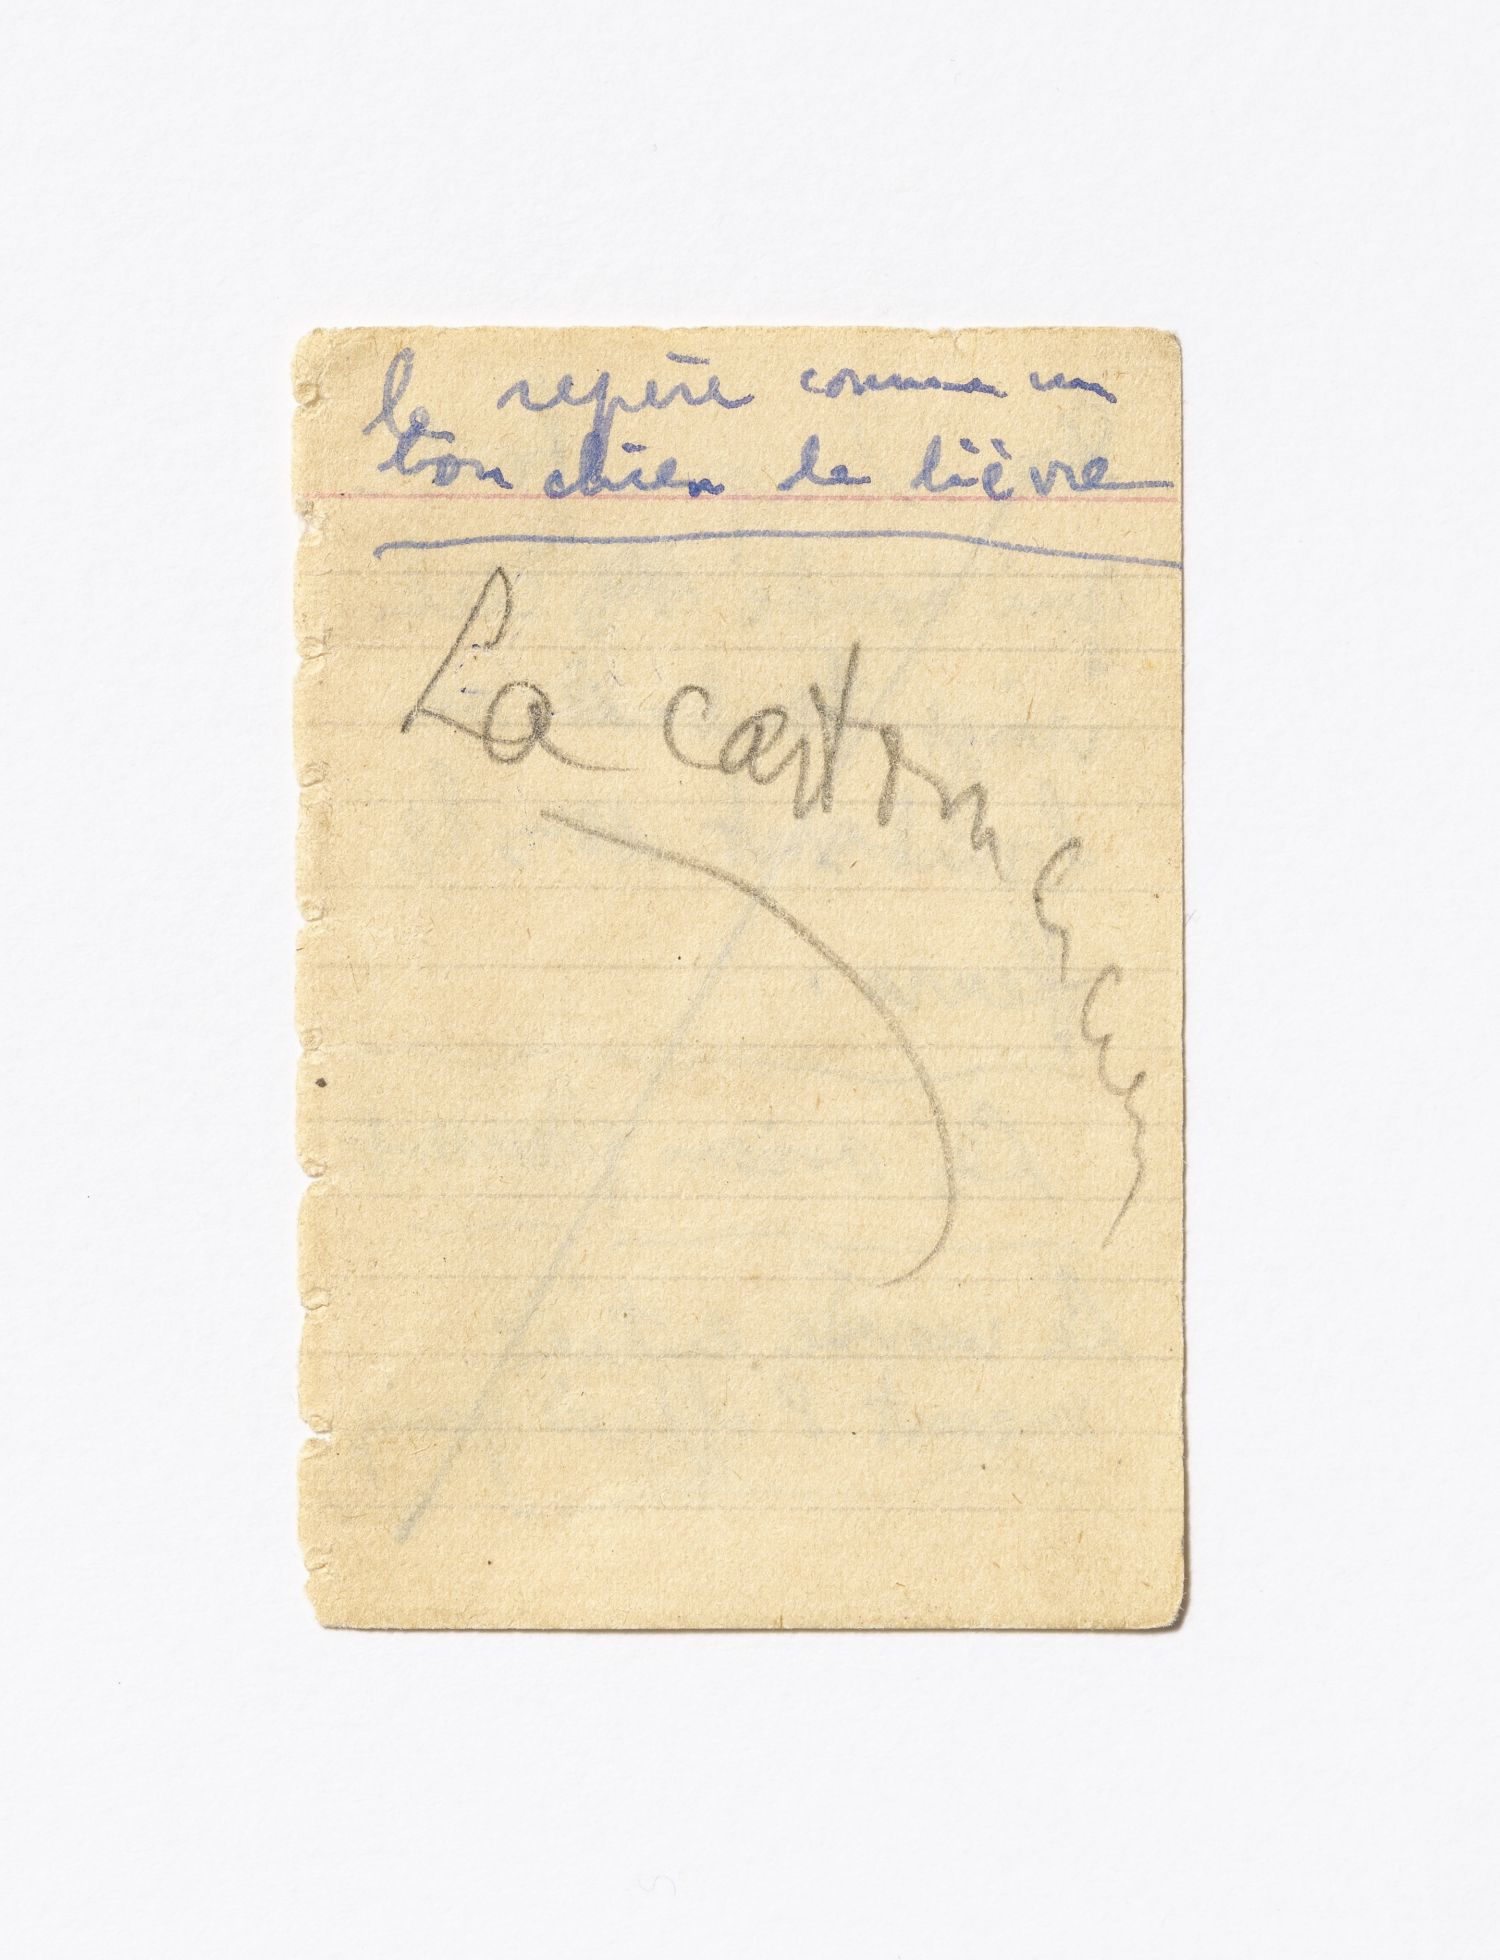 le repère comme un
bon chien le lièvre
La